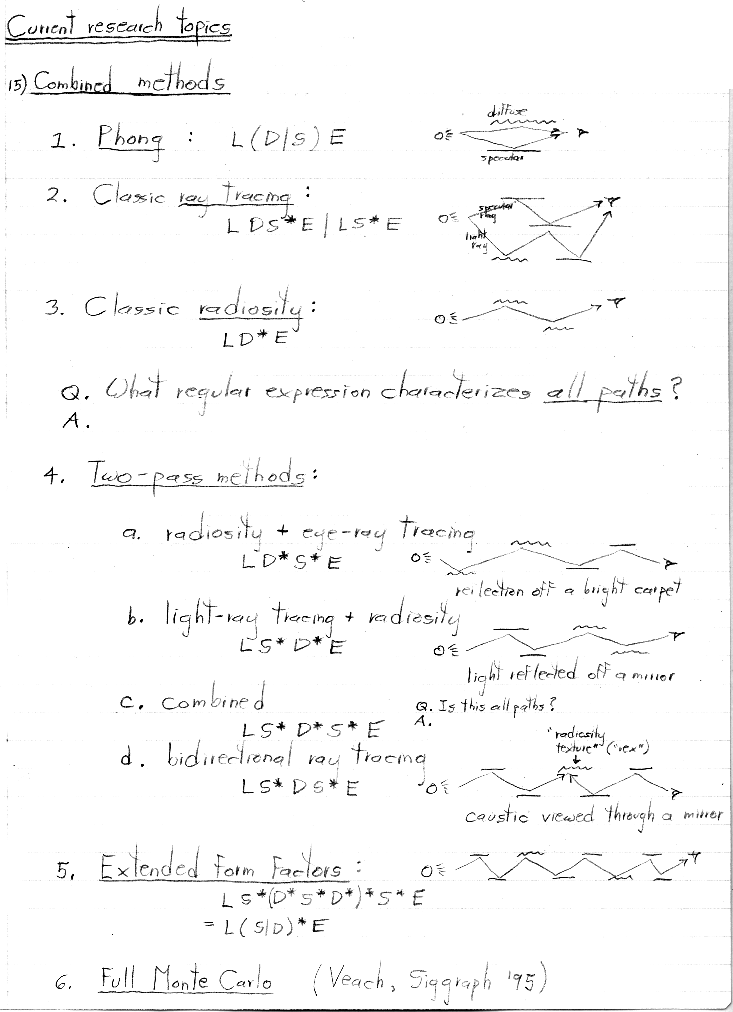 Current research topics
15) Combined methods
1. Phong : L(D|S)E
diffuse
specular
2. Classic ray tracing :
LDS*E | LS*E
specular
light
ray
3. Classic radiosity :
LD*E
Q. What regular expression characterizes all paths?
A.
4. Two-pass methods :
a. radiosity + eye-ray tracing
LD*S*E
reflection off a bright carpet
b. light-ray tracing + radiosity
LS*D*E
light reflected off a mirror
c. combined
LS*D*S*E
Q. Is this all paths?
A.
d. bidirectional ray tracing
LS*DS*E
"radiosity
texture" ("rex")
caustic viewed through a mirror
5. Extended Form Factors :
LS*(D*S*D*)*S*E
= L(S|D)*E
6. Full Monte Carlo (Veach, Siggraph '95)